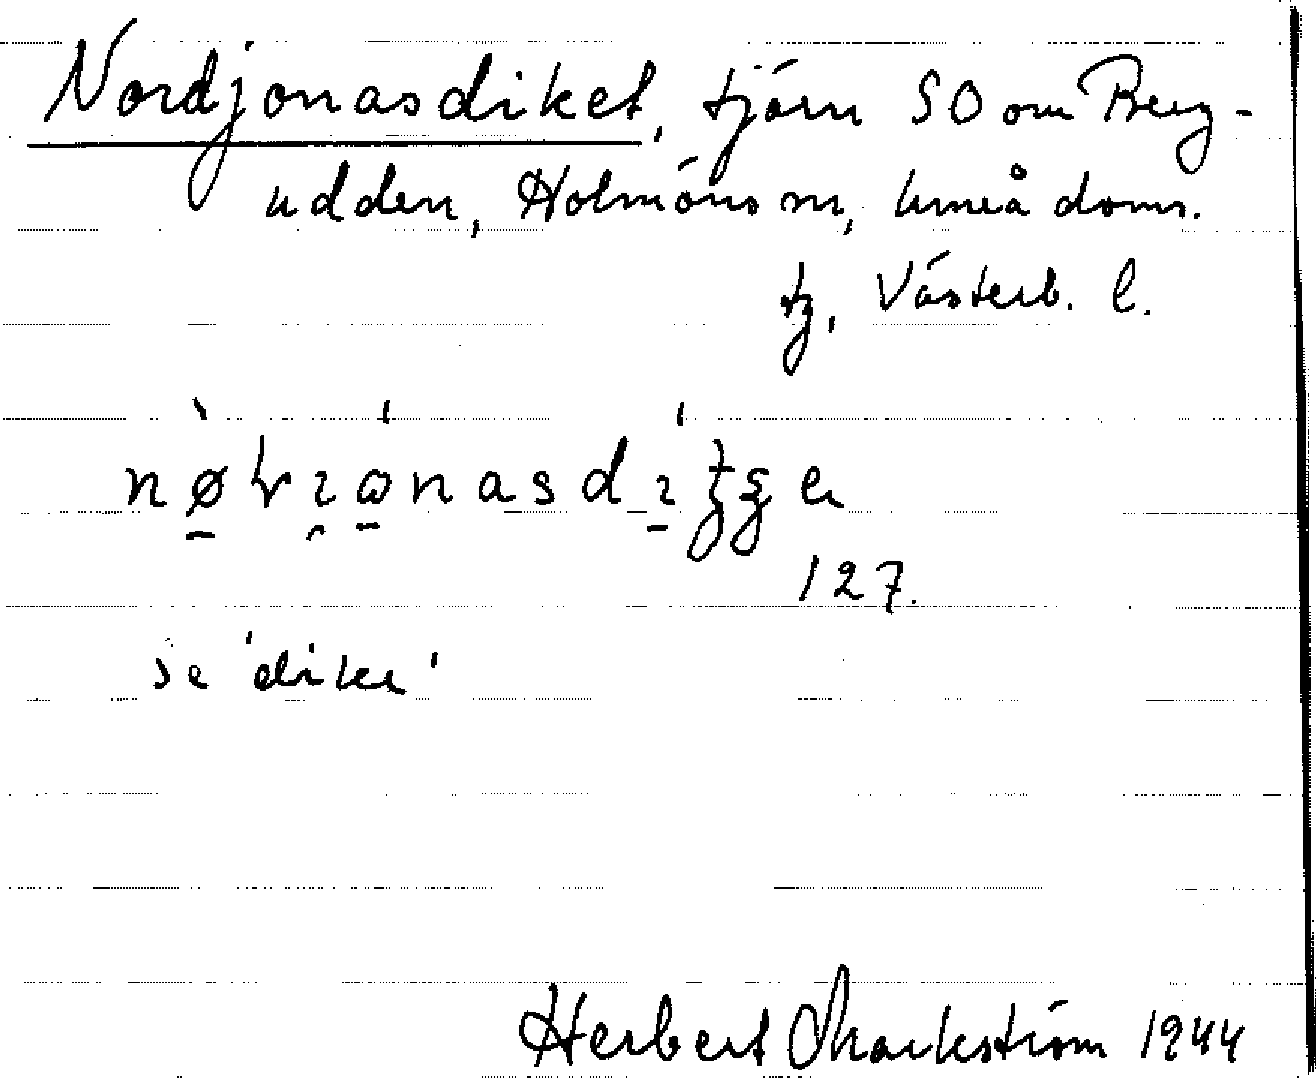 Nordjonasdiket, tjärn SO om Berg-
udden, Holmöns sn, Umeå doms.
tg, Västerb. l.
127.
se 'dike'
Herbert Markström 1944